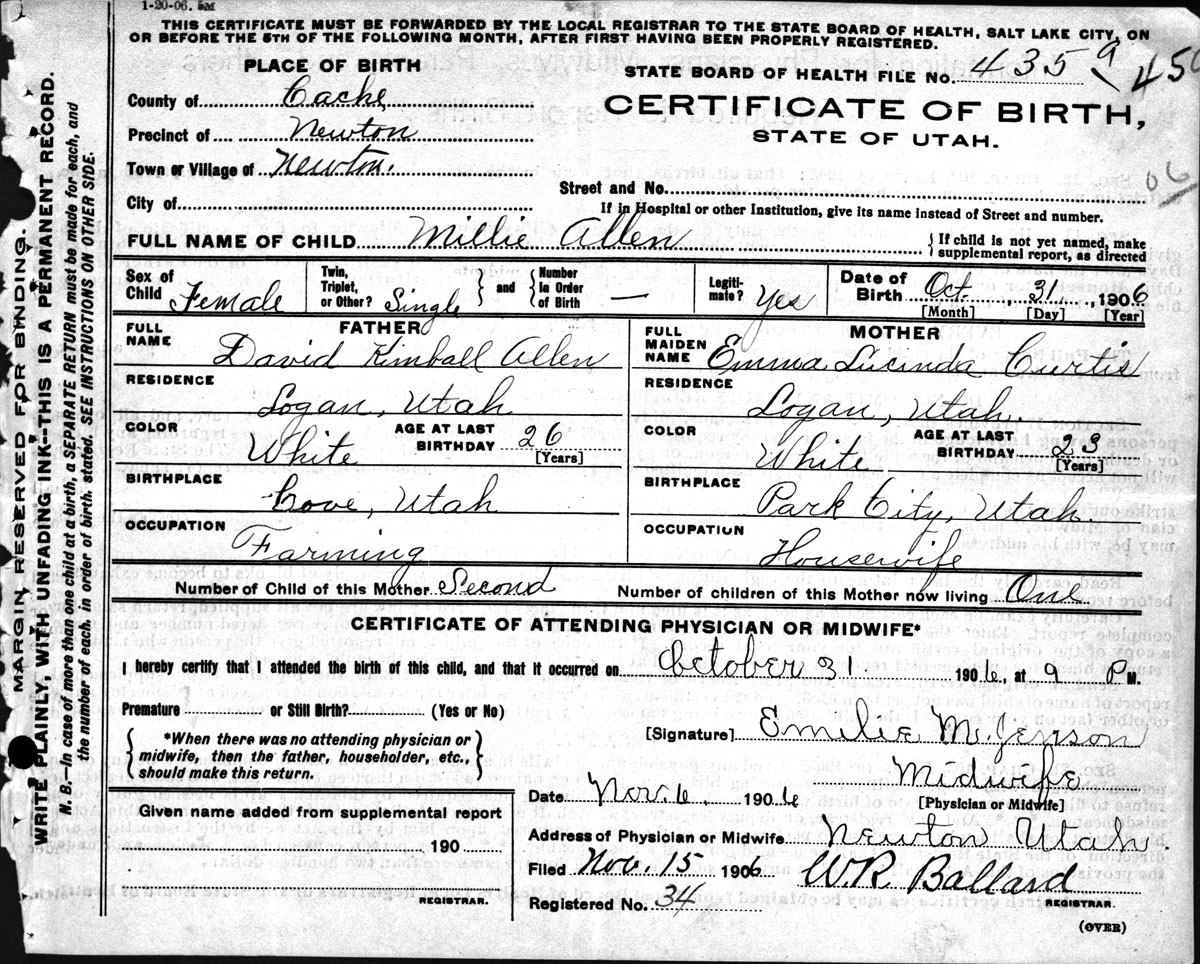 1-20-06. 5M
THIS CERTIFICATE MUST BE FORWARDED BY THE LOCAL REGISTRAR TO THE STATE BOARD OF HEALTH, SALT LAKE CITY, ON
OR BEFORE THE 5TH OF THE FOLLOWING MONTH, AFTER FIRST HAVING BEEN PROPERLY REGISTERED.
PLACE OF BIRTH
STATE BOARD OF HEALTH FILE No. 4359
County of Cache
CERTIFICATE OF BIRTH,
STATE OF UTAH.
Precinct of Newton
Town or Village of Newton.
06
Street and No.
City of
If in Hospital or other Institution, give its name instead of Street and number.
FULL NAME OF CHILD Millie Allen { If child is not yet named, make supplemental report, as directed
Sex of Child Female Twin, Triplet, or Other? Single } and { Number in Order of Birth — Legiti- mate? Yes Date of Birth Oct. 31, 1906
[Month] [Day] [Year]
FATHER
MOTHER
FULL NAME David Kimball Allen
FULL MAIDEN NAME Emma Lucinda Curtis
RESIDENCE Logan, Utah
RESIDENCE Logan, Utah.
COLOR White AGE AT LAST BIRTHDAY 26 [Years]
COLOR White AGE AT LAST BIRTHDAY 23 [Years]
BIRTHPLACE Cove, Utah
BIRTHPLACE Park City, Utah.
OCCUPATION Farming
OCCUPATION Housewife
Number of Child of this Mother Second Number of children of this Mother now living One
CERTIFICATE OF ATTENDING PHYSICIAN OR MIDWIFE*
I hereby certify that I attended the birth of this child, and that it occurred on October 31 1906, at 9 P M.
Premature or Still Birth? (Yes or No)
{ *When there was no attending physician or
midwife, then the father, householder, etc.,
should make this return. }
[Signature] Emilie M. Jenson
Midwife
[Physician or Midwife]
Date Nov. 6. 1906
Given name added from supplemental report
190
REGISTRAR.
Address of Physician or Midwife Newton Utah.
Filed Nov. 15 1906 W.R. Ballard
REGISTRAR.
Registered No. 34
(OVER)
MARGIN RESERVED FOR BINDING.
WRITE PLAINLY, WITH UNFADING INK--THIS IS A PERMANENT RECORD.
N. B.—In case of more than one child at a birth, a SEPARATE RETURN must be made for each, and
the number of each, in order of birth, stated. SEE INSTRUCTIONS ON OTHER SIDE.